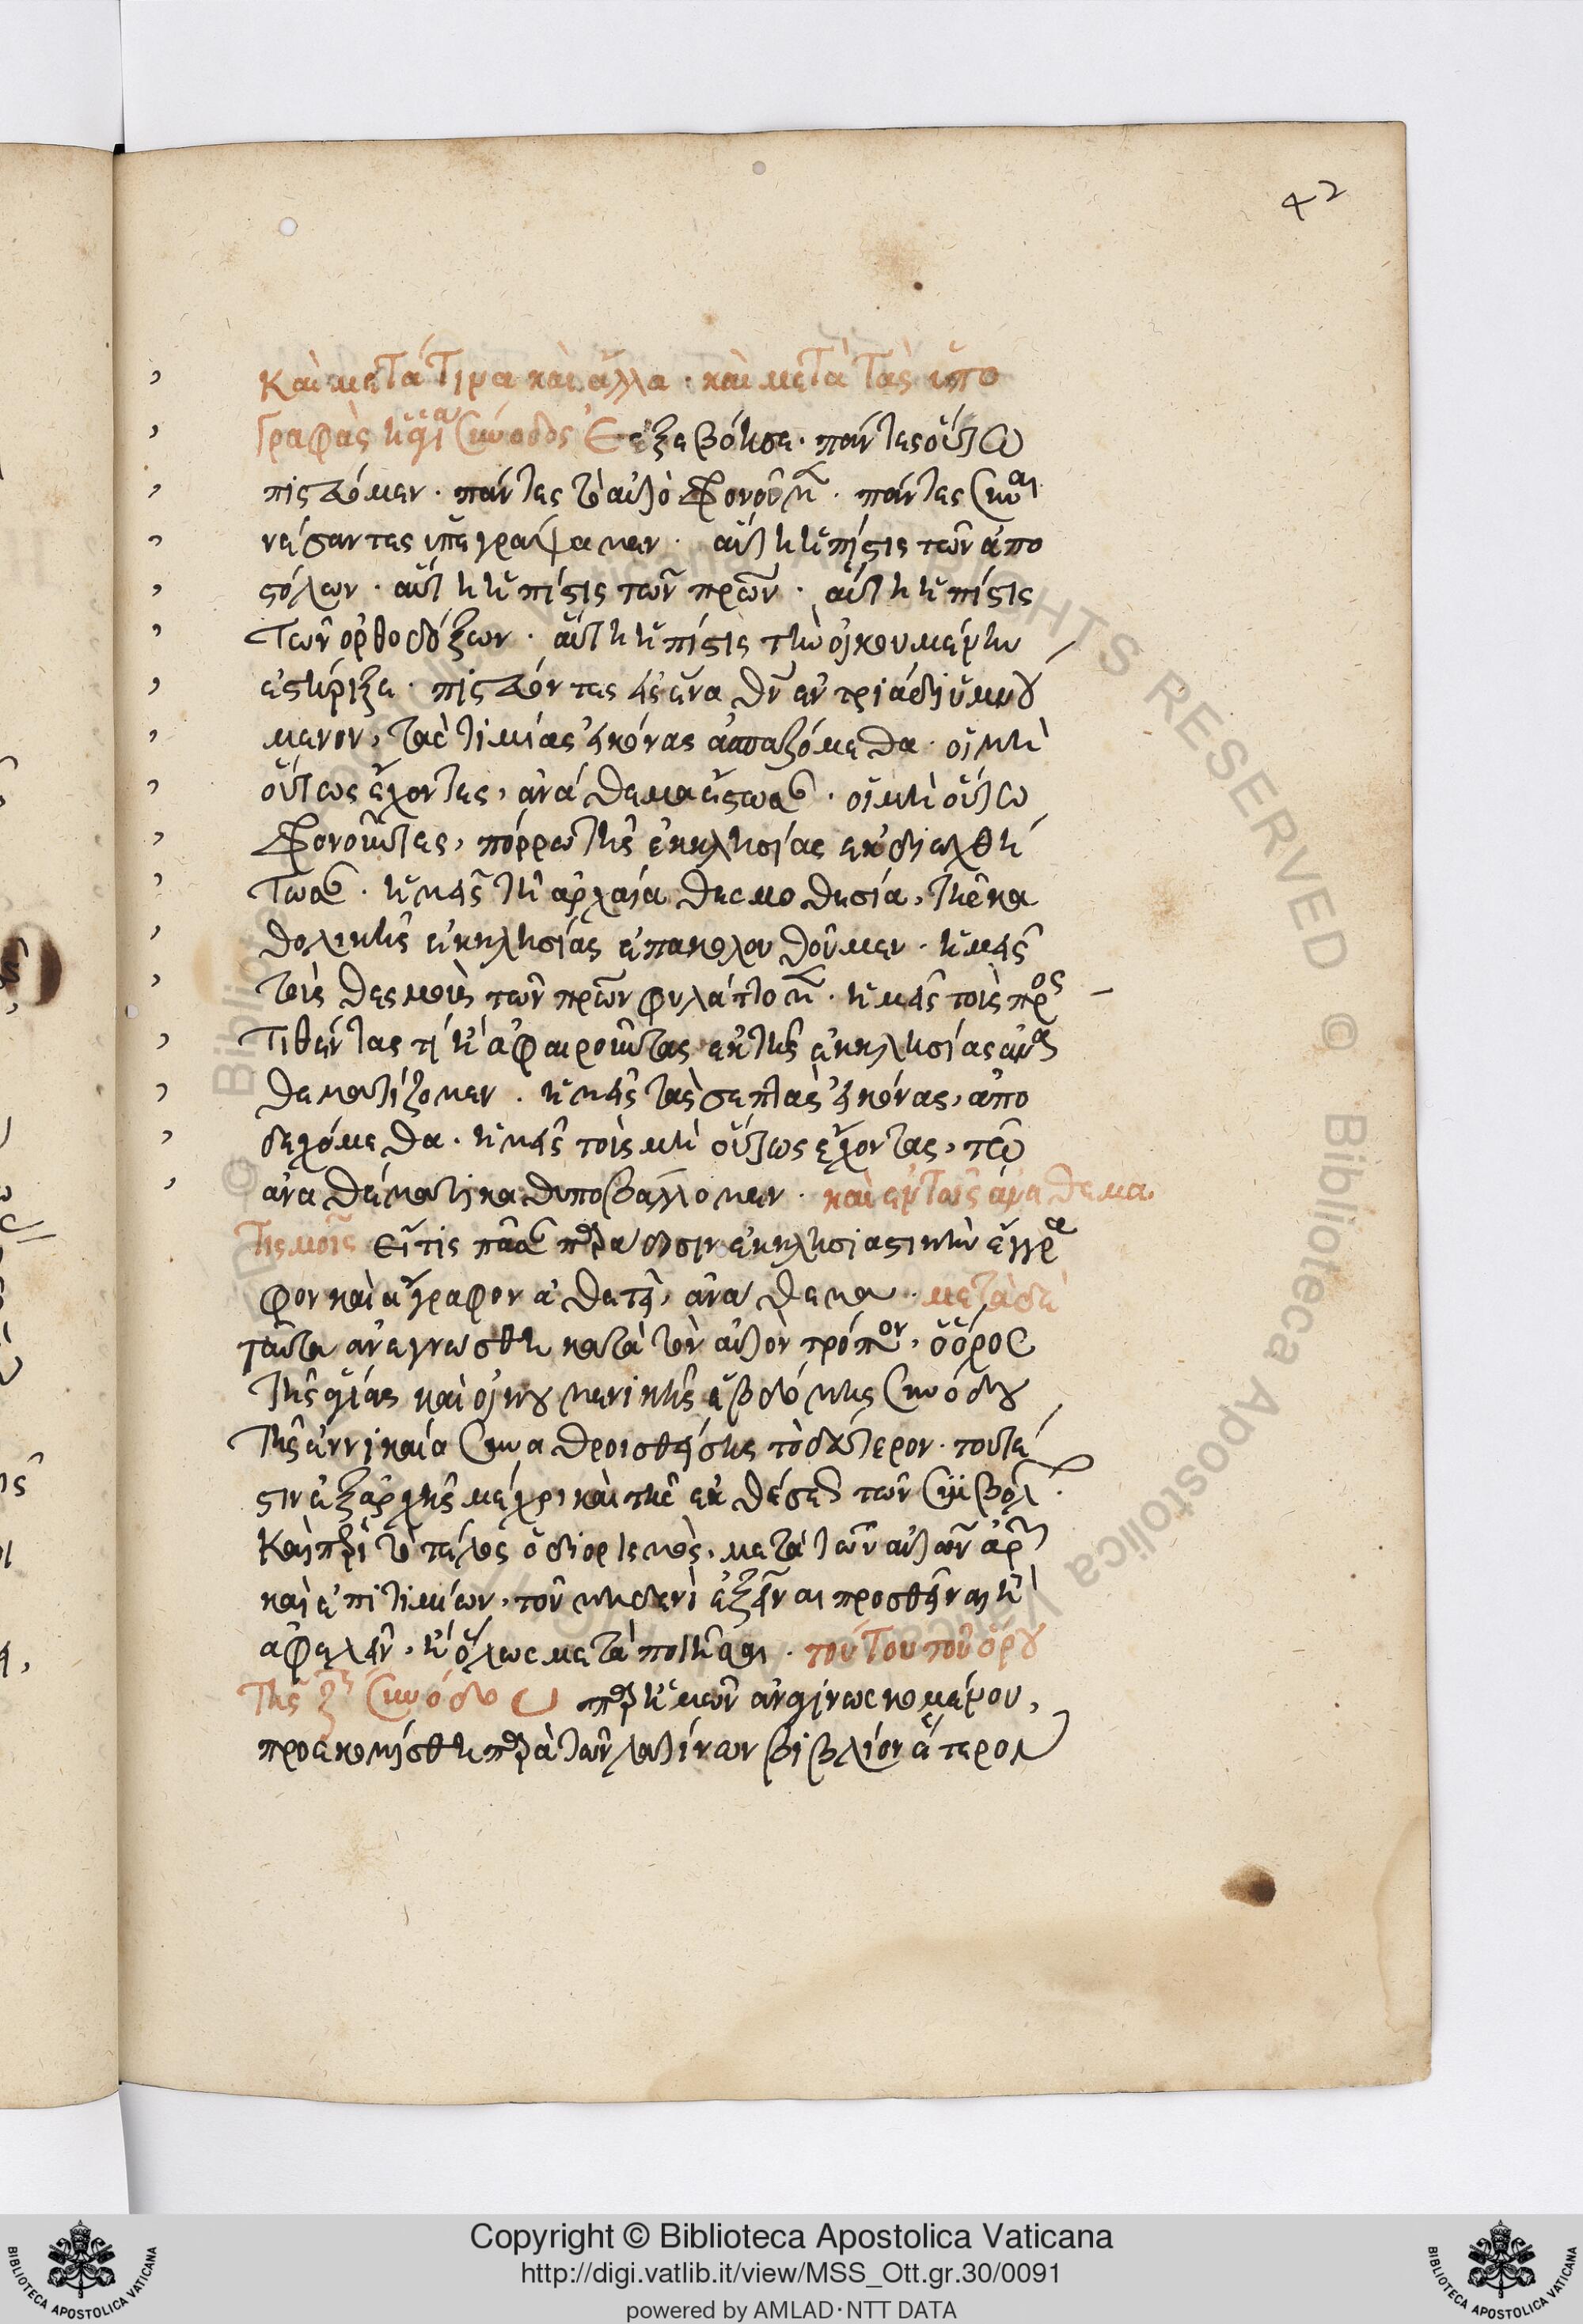 42
καὶ μετά τινα καὶ ἄλλα · καὶ μετὰ τὰς ὑπο
γραφὰς ἡ ἁγία σύνοδος ἐξεβόησε · πάντες οὕτω
πιστεύομεν · πάντες τὸ αὐτὸ φρονοῦμεν · πάντες συναι
νέσαντες ὑπεγράψαμεν · αὕτη ἡ πίστις τῶν ἀπο
στόλων · αὕτη ἡ πίστις τῶν πρων · αὕτη ἡ πίστις
τῶν ὀρθοδόξων · αὕτη ἡ πίστις τὴν οἰκουμένην
ἐστήριξε · πιστεύοντες εἰς ἕνα θν ἐν τριάδι ὑμνού
μενον, τὰς τιμίας εἰκόνας ἀσπαζόμεθα · οἱ μὴ
οὕτως ἔχοντες, ἀνάθεμα ἔστωσαν · οἱ μὴ οὕτω
φρονοῦντες, πόρρω τῆς ἐκκλησίας ἐκδιωχθή
τωσαν · ἡμεῖς τῆ ἀρχαία θεσμοθεσία, τῆς κα
θολικῆς ἐκκλησίας ἐπακολουθοῦμεν · ἡμεῖς
τοὺς θεσμοὺς τῶν πρων φυλάττομεν · ἡμεῖς τοὺς προς
τιθέντας τὶ ἢ ἀφαιροῦντας ἐκ τῆς ἐκκλησίας ἀνα
θεματίζομεν · ἡμεῖς τὰς σεπτὰς εἰκόνας, ἀπο
δεχόμεθα · ἡμεῖς τοὺς μὴ οὕτως ἔχοντας, τῶ
ἀναθέματι καθυποβάλλομεν · καὶ ἐν τοῖς ἀναθεμα
τισμοῖς εἴτις πᾶσαν παράδοσιν ἐκκλησιαστικὴν ἔγγρα
φον καὶ ἄγραφον ἀθετεῖ, ἀνάθεμα · μετὰ δὲ
ταῦτα ἀνεγνώσθη κατὰ τὸν αὐτὸν τρόπον, ὁ ὅρος
τῆς ἁγίας καὶ οἰκουμενικῆς ἑβδόμης συνόδου
τῆς ἐν νικαία συναθροισθείσης τὸ δεύτερον · τουτέ
στιν ἐξαρχῆς μέχρι καὶ τῆς ἐκθέσεως τῶν συμβόλ ·
καὶ περὶ τὸ τέλος ὁ διορισμὸς, μετὰ τῶν αὐτῶν ἀρῶν
καὶ ἐπιτιμίων, τοῦ μηδενὶ ἐξεῖναι προσθεῖναι ἢ
ἀφελεῖν, ἢ ὅλως μεταποιῆσαι · τούτου τοῦ ὅρου
τῆς ζης συνόδου παρ ἡμῶν ἀναγινωσκομένου,
προεκομίσθη παρὰ τῶν λατίνων βιβλίον ἕτερον
Copyright © Biblioteca Apostolica Vaticana
http://digi.vatlib.it/view/MSS_Ott.gr.30/0091
powered by AMLAD·NTT DATA
BIBLIOTECA APOSTOLICA VATICANA
BIBLIOTECA APOSTOLICA VATICANA